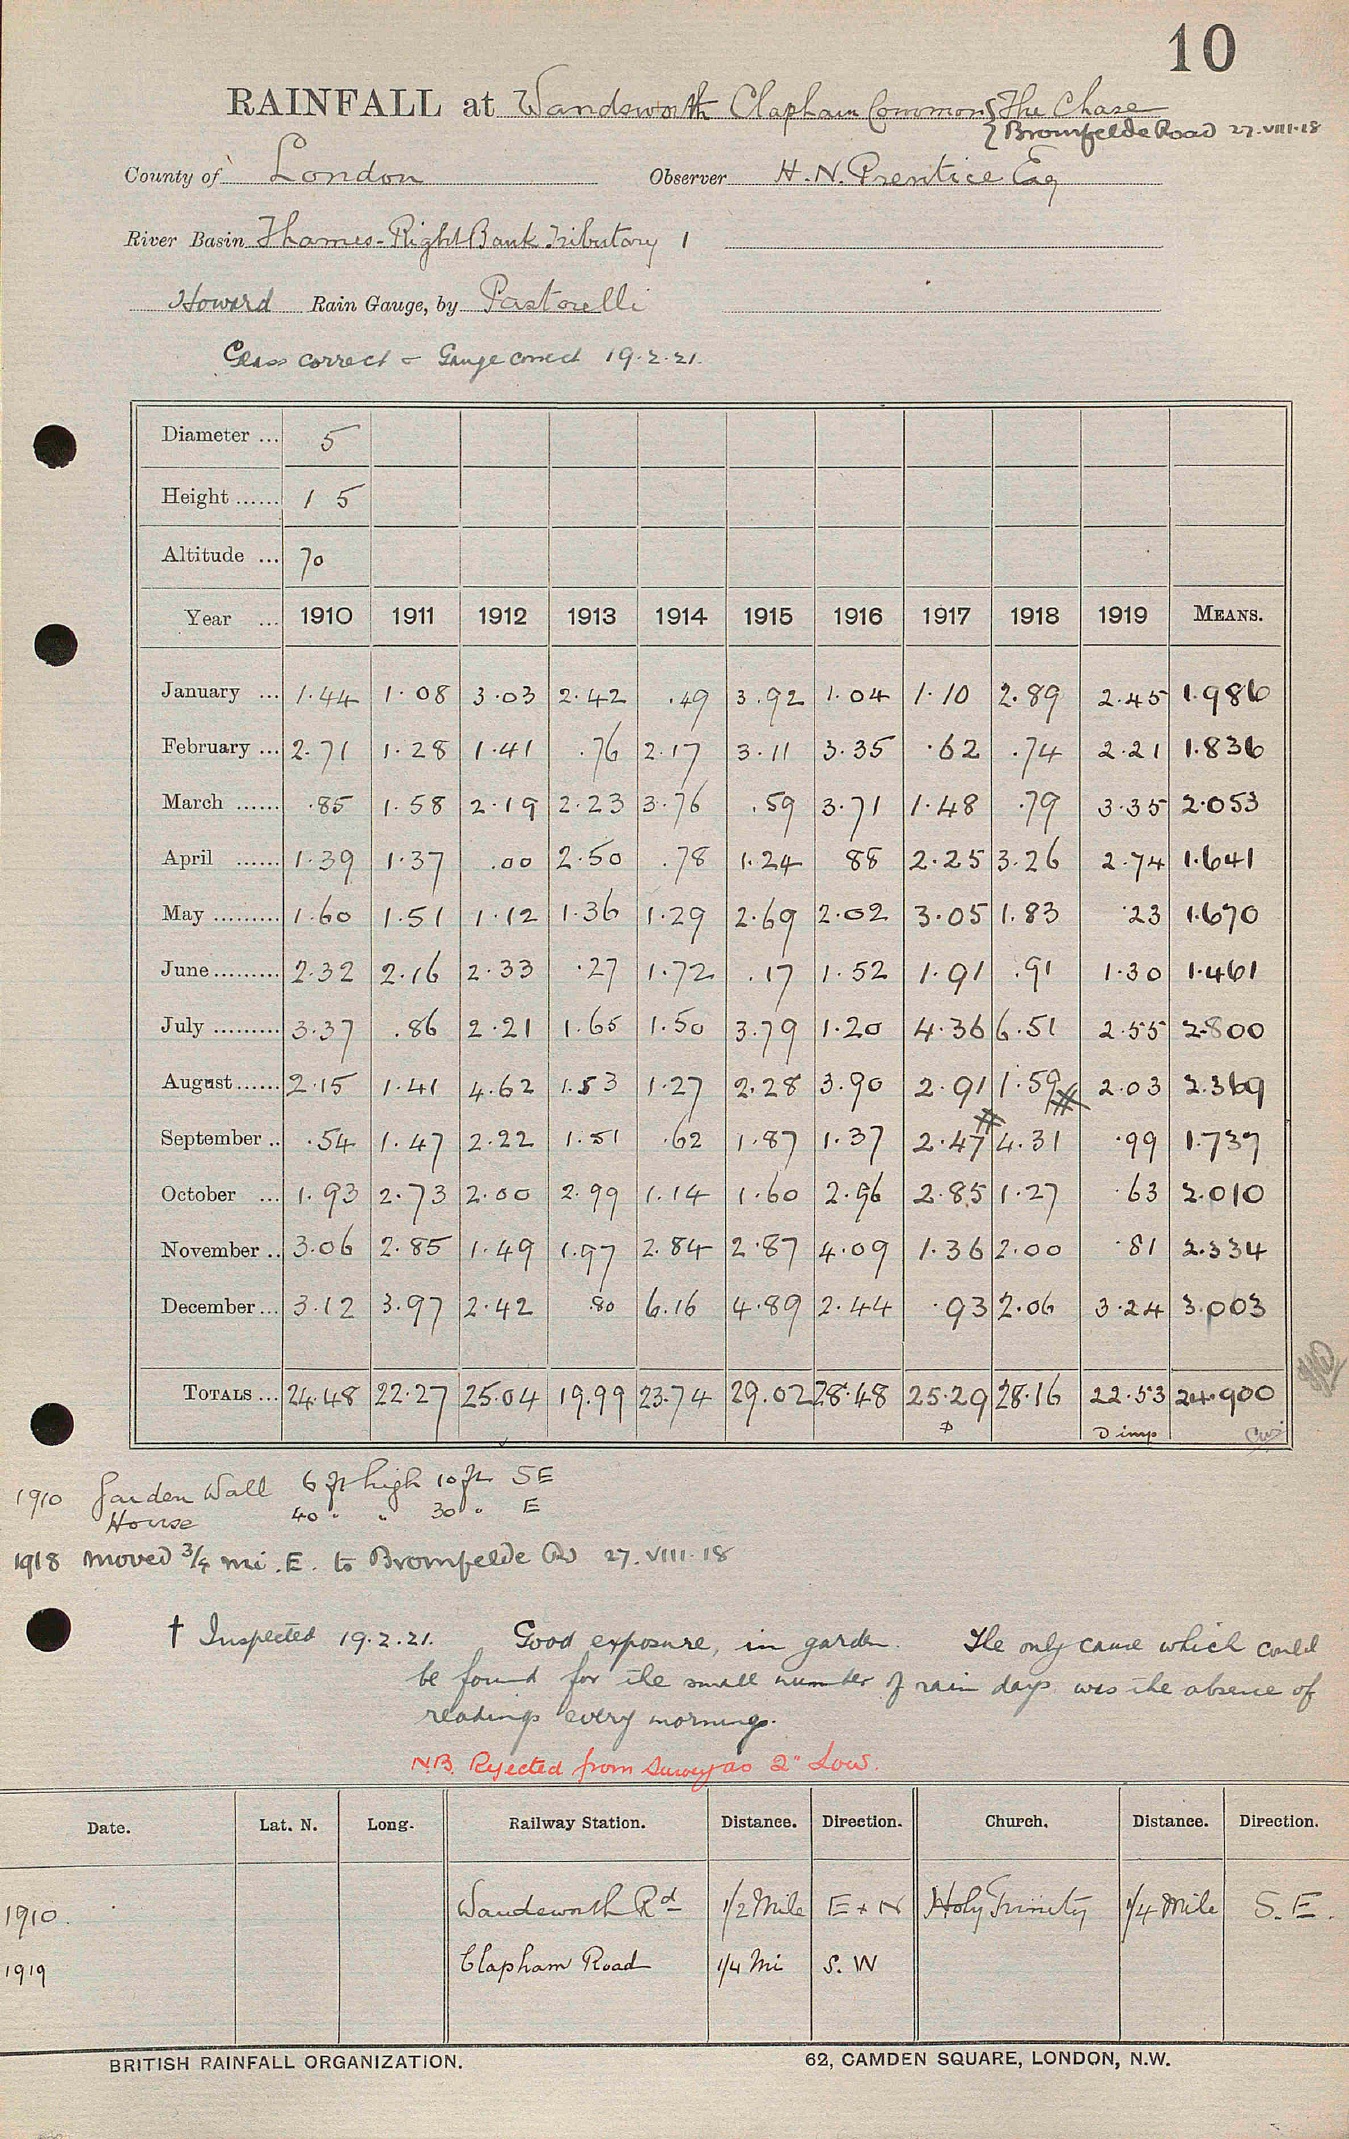 10
RAINFALL at Wandsworth Clapham Common { The Chase
{ Bromfelde Road 27.VIII.18
County of London Observer H. N. Prentice Esq
River Basin Thames - Right Bank Tributary 1
Howard Rain Gauge, by Pastorelli
Glass correct & Gauge correct 19.2.21.
Diameter ... 5
Height ...... 1 5
Altitude ... 70
Year ... 1910 1911 1912 1913 1914 1915 1916 1917 1918 1919 MEANS.
January ... 1.44 1.08 3.03 2.42 .49 3.92 1.04 1.10 2.89 2.45 1.986
February ... 2.71 1.28 1.41 .76 2.17 3.11 3.35 .62 .74 2.21 1.836
March ...... .85 1.58 2.19 2.23 3.76 .59 3.71 1.48 .79 3.35 2.053
April ...... 1.39 1.37 .00 2.50 .78 1.24 88 2.25 3.26 2.74 1.641
May ......... 1.60 1.51 1.12 1.36 1.29 2.69 2.02 3.05 1.83 .23 1.670
June ......... 2.32 2.16 2.33 .27 1.72 .17 1.52 1.91 .91 1.30 1.461
July ......... 3.37 .86 2.21 1.65 1.50 3.79 1.20 4.36 6.51 2.55 2.800
August ...... 2.15 1.41 4.62 1.53 1.27 2.28 3.90 2.91 1.59 2.03 2.369
September .. .54 1.47 2.22 1.51 .62 1.87 1.37 2.47 4.31 .99 1.737
October ... 1.93 2.73 2.00 2.99 1.14 1.60 2.96 2.85 1.27 .63 2.010
November .. 3.06 2.85 1.49 1.97 2.84 2.87 4.09 1.36 2.00 .81 2.334
December ... 3.12 3.97 2.42 .80 6.16 4.89 2.44 .93 2.06 3.24 3.003
TOTALS ... 24.48 22.27 25.04 19.99 23.74 29.02 28.48 25.29 28.16 22.53 24.900
D imp
1910 Garden Wall 6 ft high 10 ft SE
House 40 " " 30 " E
1918 moved 3/4 mi. E. to Bromfelde Rd 27.VIII.18
† Inspected 19.2.21. Good exposure, in garden. The only cause which could
be found for the small number of rain days was the absence of
readings every morning.
N.B. Rejected from Survey as 2" Low.
Date. Lat. N. Long. Railway Station. Distance. Direction. Church. Distance. Direction.
1910. Wandsworth Rd 1/2 Mile E + N Holy Trinity 1/4 Mile S. E.
1919 Clapham Road 1/4 Mi S. W
BRITISH RAINFALL ORGANIZATION. 62, CAMDEN SQUARE, LONDON, N.W.